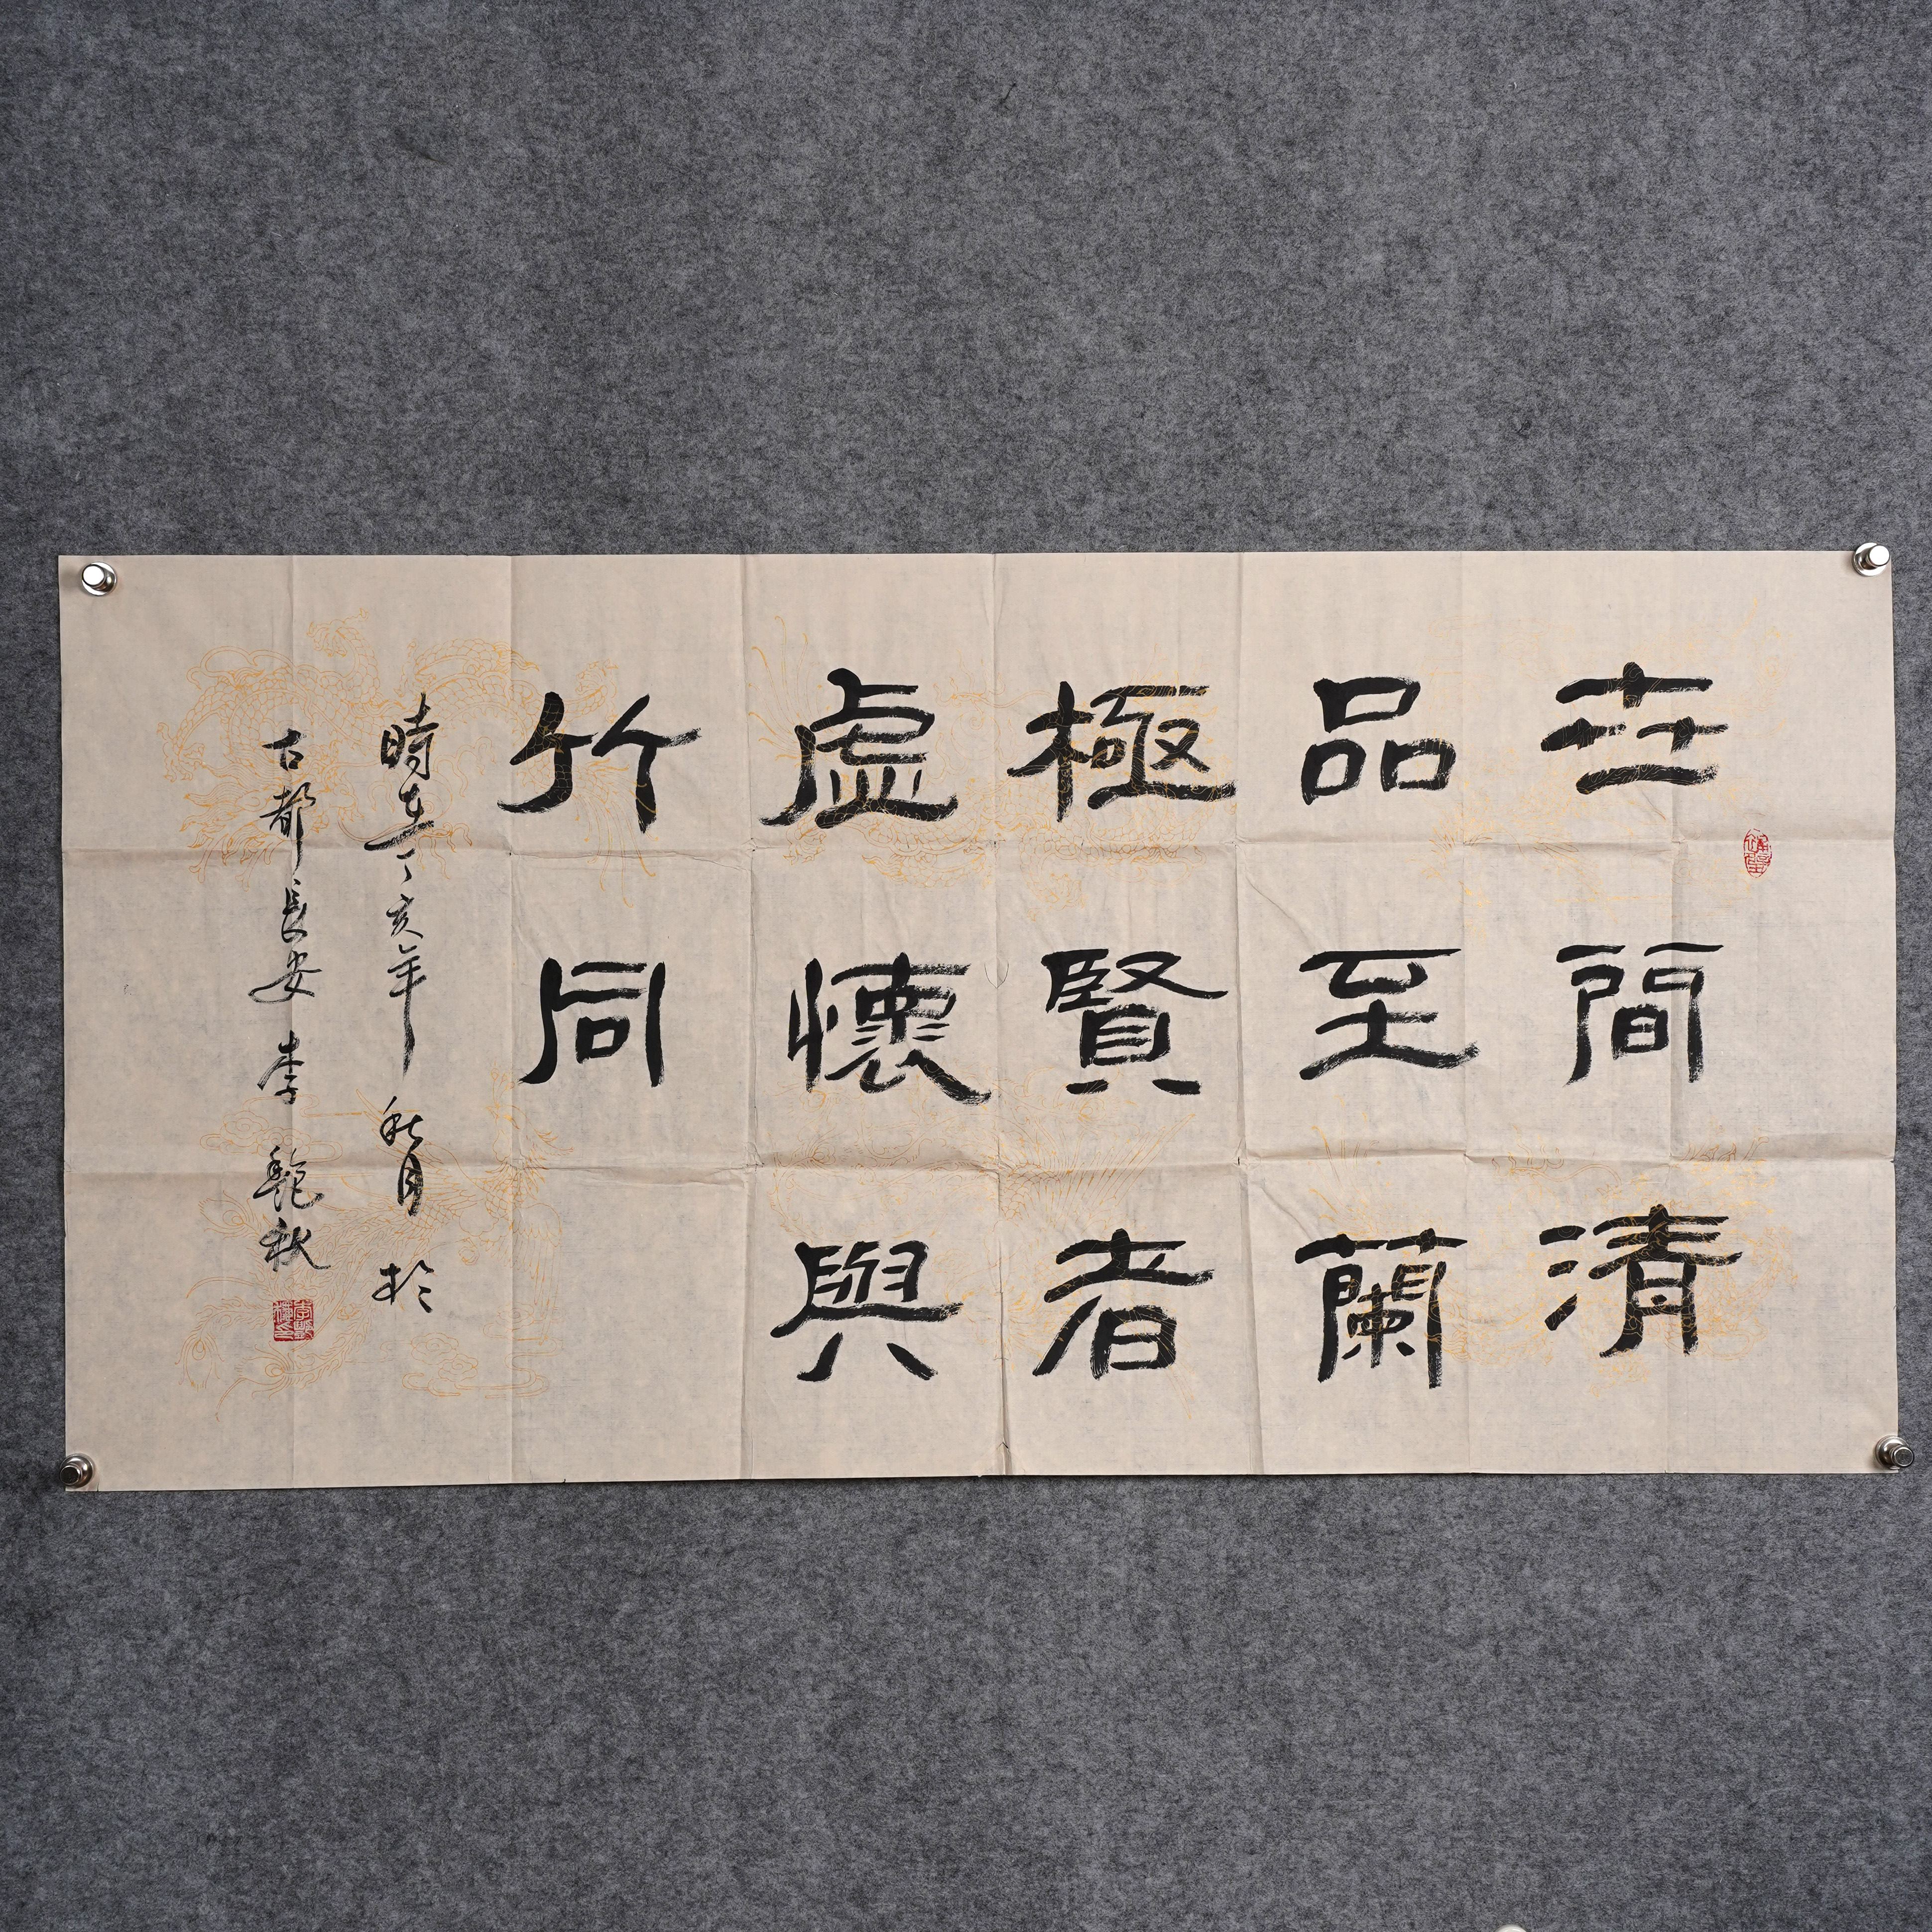 世間清
品至蘭
極賢者
虛懷與
竹同
時在丁亥年秋月於
古都長安李艷秋